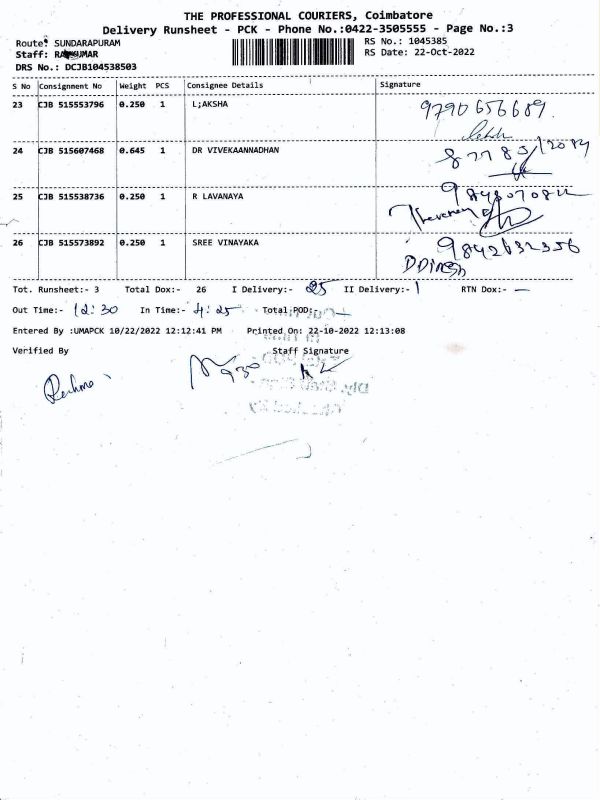 THE PROFESSIONAL COURIERS, Coimbatore
Delivery Runsheet - PCK - Phone No.:0422-3505555 - Page No.:3
Route: SUNDARAPURAM
Staff:
DRS No.: DCJB104538503
RS No.: 1045385
RS Date: 22-Oct-2022
S No Consignment No Weight PCS Consignee Details Signature
23 CJB 515553796 0.250 1 L;AKSHA 9790656689
24 CJB 515607468 0.645 1 DR VIVEKAANNADHAN
25 CJB 515538736 0.250 1 R LAVANAYA
26 CJB 515573892 0.250 1 SREE VINAYAKA 9842632356
DDINESH
Tot. Runsheet:- 3 Total Dox:- 26 I Delivery:- 25 II Delivery:- 1 RTN Dox:- —
Out Time:- 12:30 In Time:- 4:25 Total POD:-
Entered By :UMAPCK 10/22/2022 12:12:41 PM Printed On: 22-10-2022 12:13:08
Verified By Staff Signature